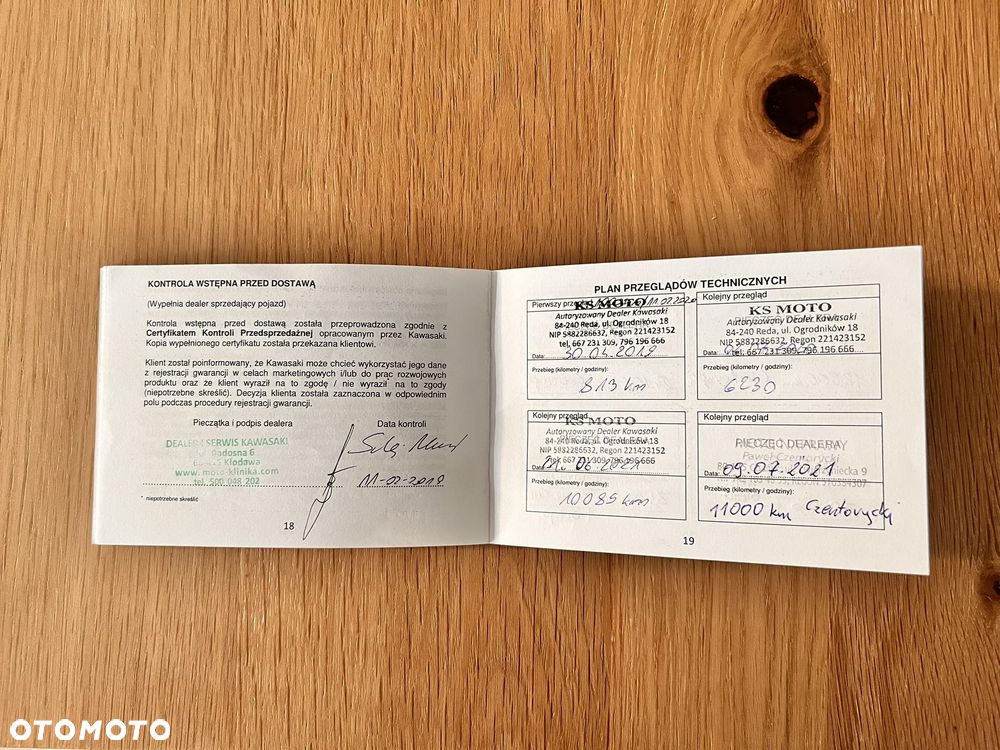 KONTROLA WSTĘPNA PRZED DOSTAWĄ
(Wypełnia dealer sprzedający pojazd)
Kontrola wstępna przed dostawą została przeprowadzona zgodnie z
Certyfikatem Kontroli Przedsprzedażnej opracowanym przez Kawasaki.
Kopia wypełnionego certyfikatu została przekazana klientowi.
Klient został poinformowany, że Kawasaki może chcieć wykorzystać jego dane
z rejestracji gwarancji w celach marketingowych i/lub do prac rozwojowych
produktu oraz że klient wyraził na to zgodę / nie wyraził na to zgody
(niepotrzebne skreślić). Decyzja klienta została zaznaczona w odpowiednim
polu podczas procedury rejestracji gwarancji.
Pieczątka i podpis dealera
Data kontroli
DEALER SERWIS KAWASAKI
Kłodawa
www.moto-klinika.com
tel. 500 048 202
11-02-2019
* niepotrzebne skreślić
18
PLAN PRZEGLĄDÓW TECHNICZNYCH
Pierwszy
KS MOTO
Autoryzowany Dealer Kawasaki
84-240 Reda, ul. Ogrodników 18
NIP 5882286632, Regon 221423152
tel. 667 231 309, 796 196 666
Data: 30.04.2019
Przebieg (kilometry / godziny):
813 km
Kolejny przegląd
KS MOTO
Autoryzowany Dealer Kawasaki
84-240 Reda, ul. Ogrodników 18
NIP 5882286632, Regon 221423152
tel. 667 231 309, 796 196 666
Data:
Przebieg (kilometry / godziny):
6230
Kolejny przegląd
KS MOTO
Autoryzowany Dealer Kawasaki
84-240 Reda, ul. Ogrodników 18
NIP 5882286632, Regon 221423152
tel. 667 231 309, 796 196 666
Data: 06.2021
Przebieg (kilometry / godziny):
10085 km
Kolejny przegląd
PIECZĘĆ DEALERA
Data: 09.07.2021
Przebieg (kilometry / godziny):
11000 km
19
OTOMOTO